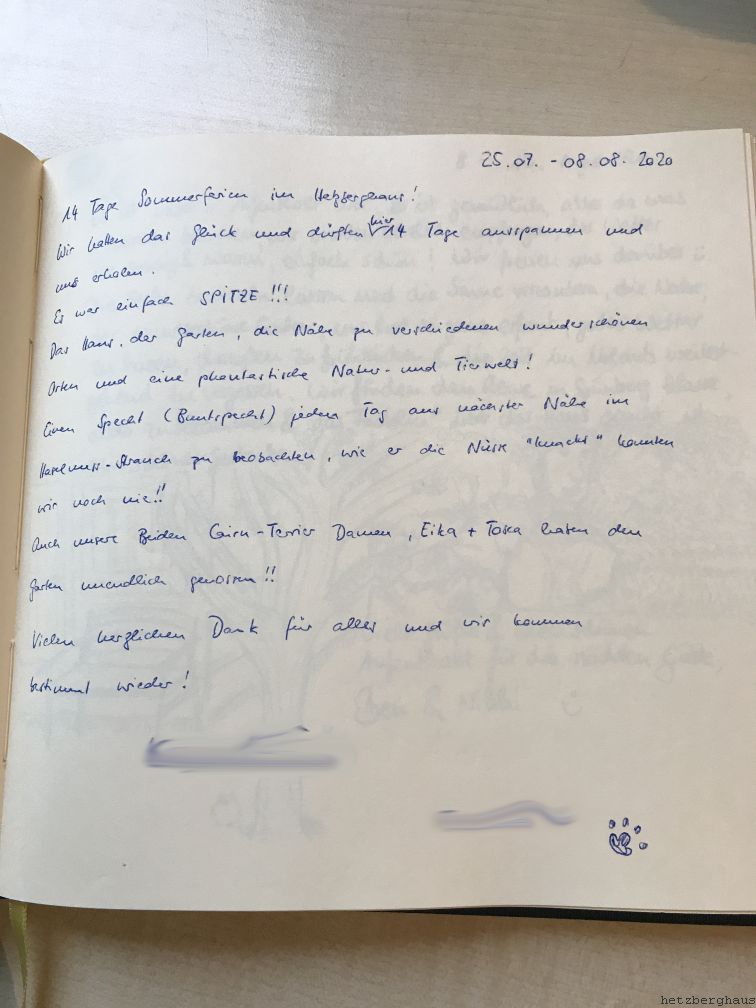 25.07. - 08.08. 2020
14 Tage Sommerferien im Hetzberghaus!
Wir hatten das Glück und durften hier 14 Tage ausspannen und
uns erholen.
Es war einfach SPITZE!!!
Das Haus, der Garten, die Nähe zu verschiedenen wunderschönen
Orten und eine phantastische Natur- und Tierwelt!
Einen Specht (Buntspecht) jeden Tag aus nächster Nähe im
Haselnuss-Strauch zu beobachten, wie er die Nüsse "knackt" konnten
wir noch nie!!
Auch unsere Beiden Cairn-Terrier Damen, Eika + Toska haben den
Garten unendlich genossen!!
Vielen herzlichen Dank für alles und wir kommen
bestimmt wieder!
hetzberghaus